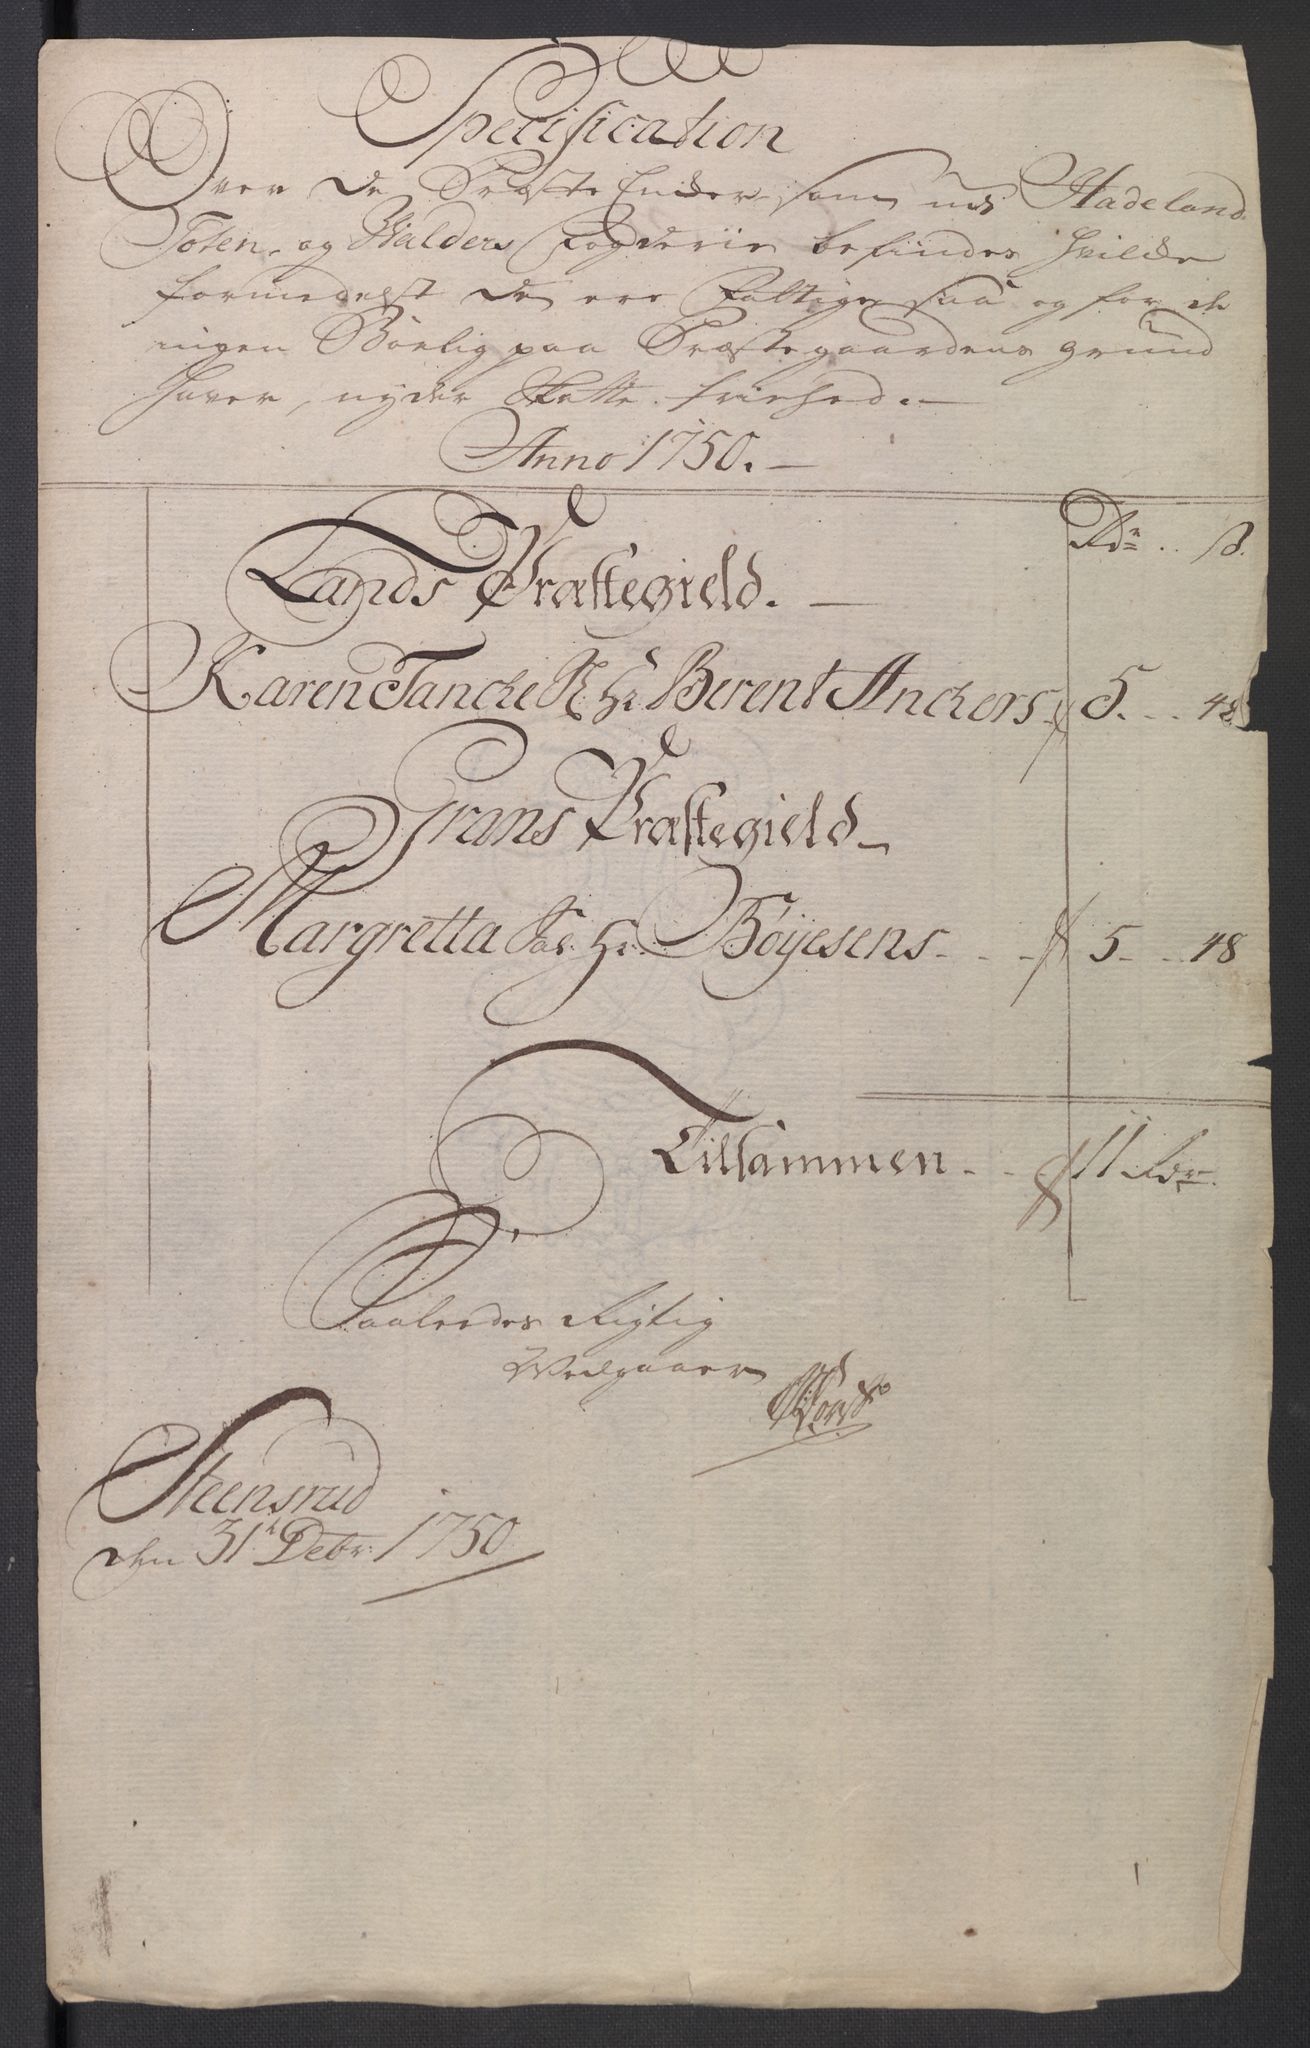 Specification
Over de Præste Enker som udi Hadeland
Toten, og Walders Fogderie befindes hvilke
formedelst de ere Fattige saa og for de
ingen Boelig paa Præstegaardens grund
haver, nyder Skatte friehed.
Anno 1750.
Rdr ß.
Lands Præstegield.
Karen Tanche Hr Berent Anckers 5. 48
Grans Præstegield
Margretta Sal: Hr: Böyesens 5 48
Tilsammen 11 Rdr
Saaleedes Rigtig
Wedgaaer
Steensrud
den 31t Debr: 1750